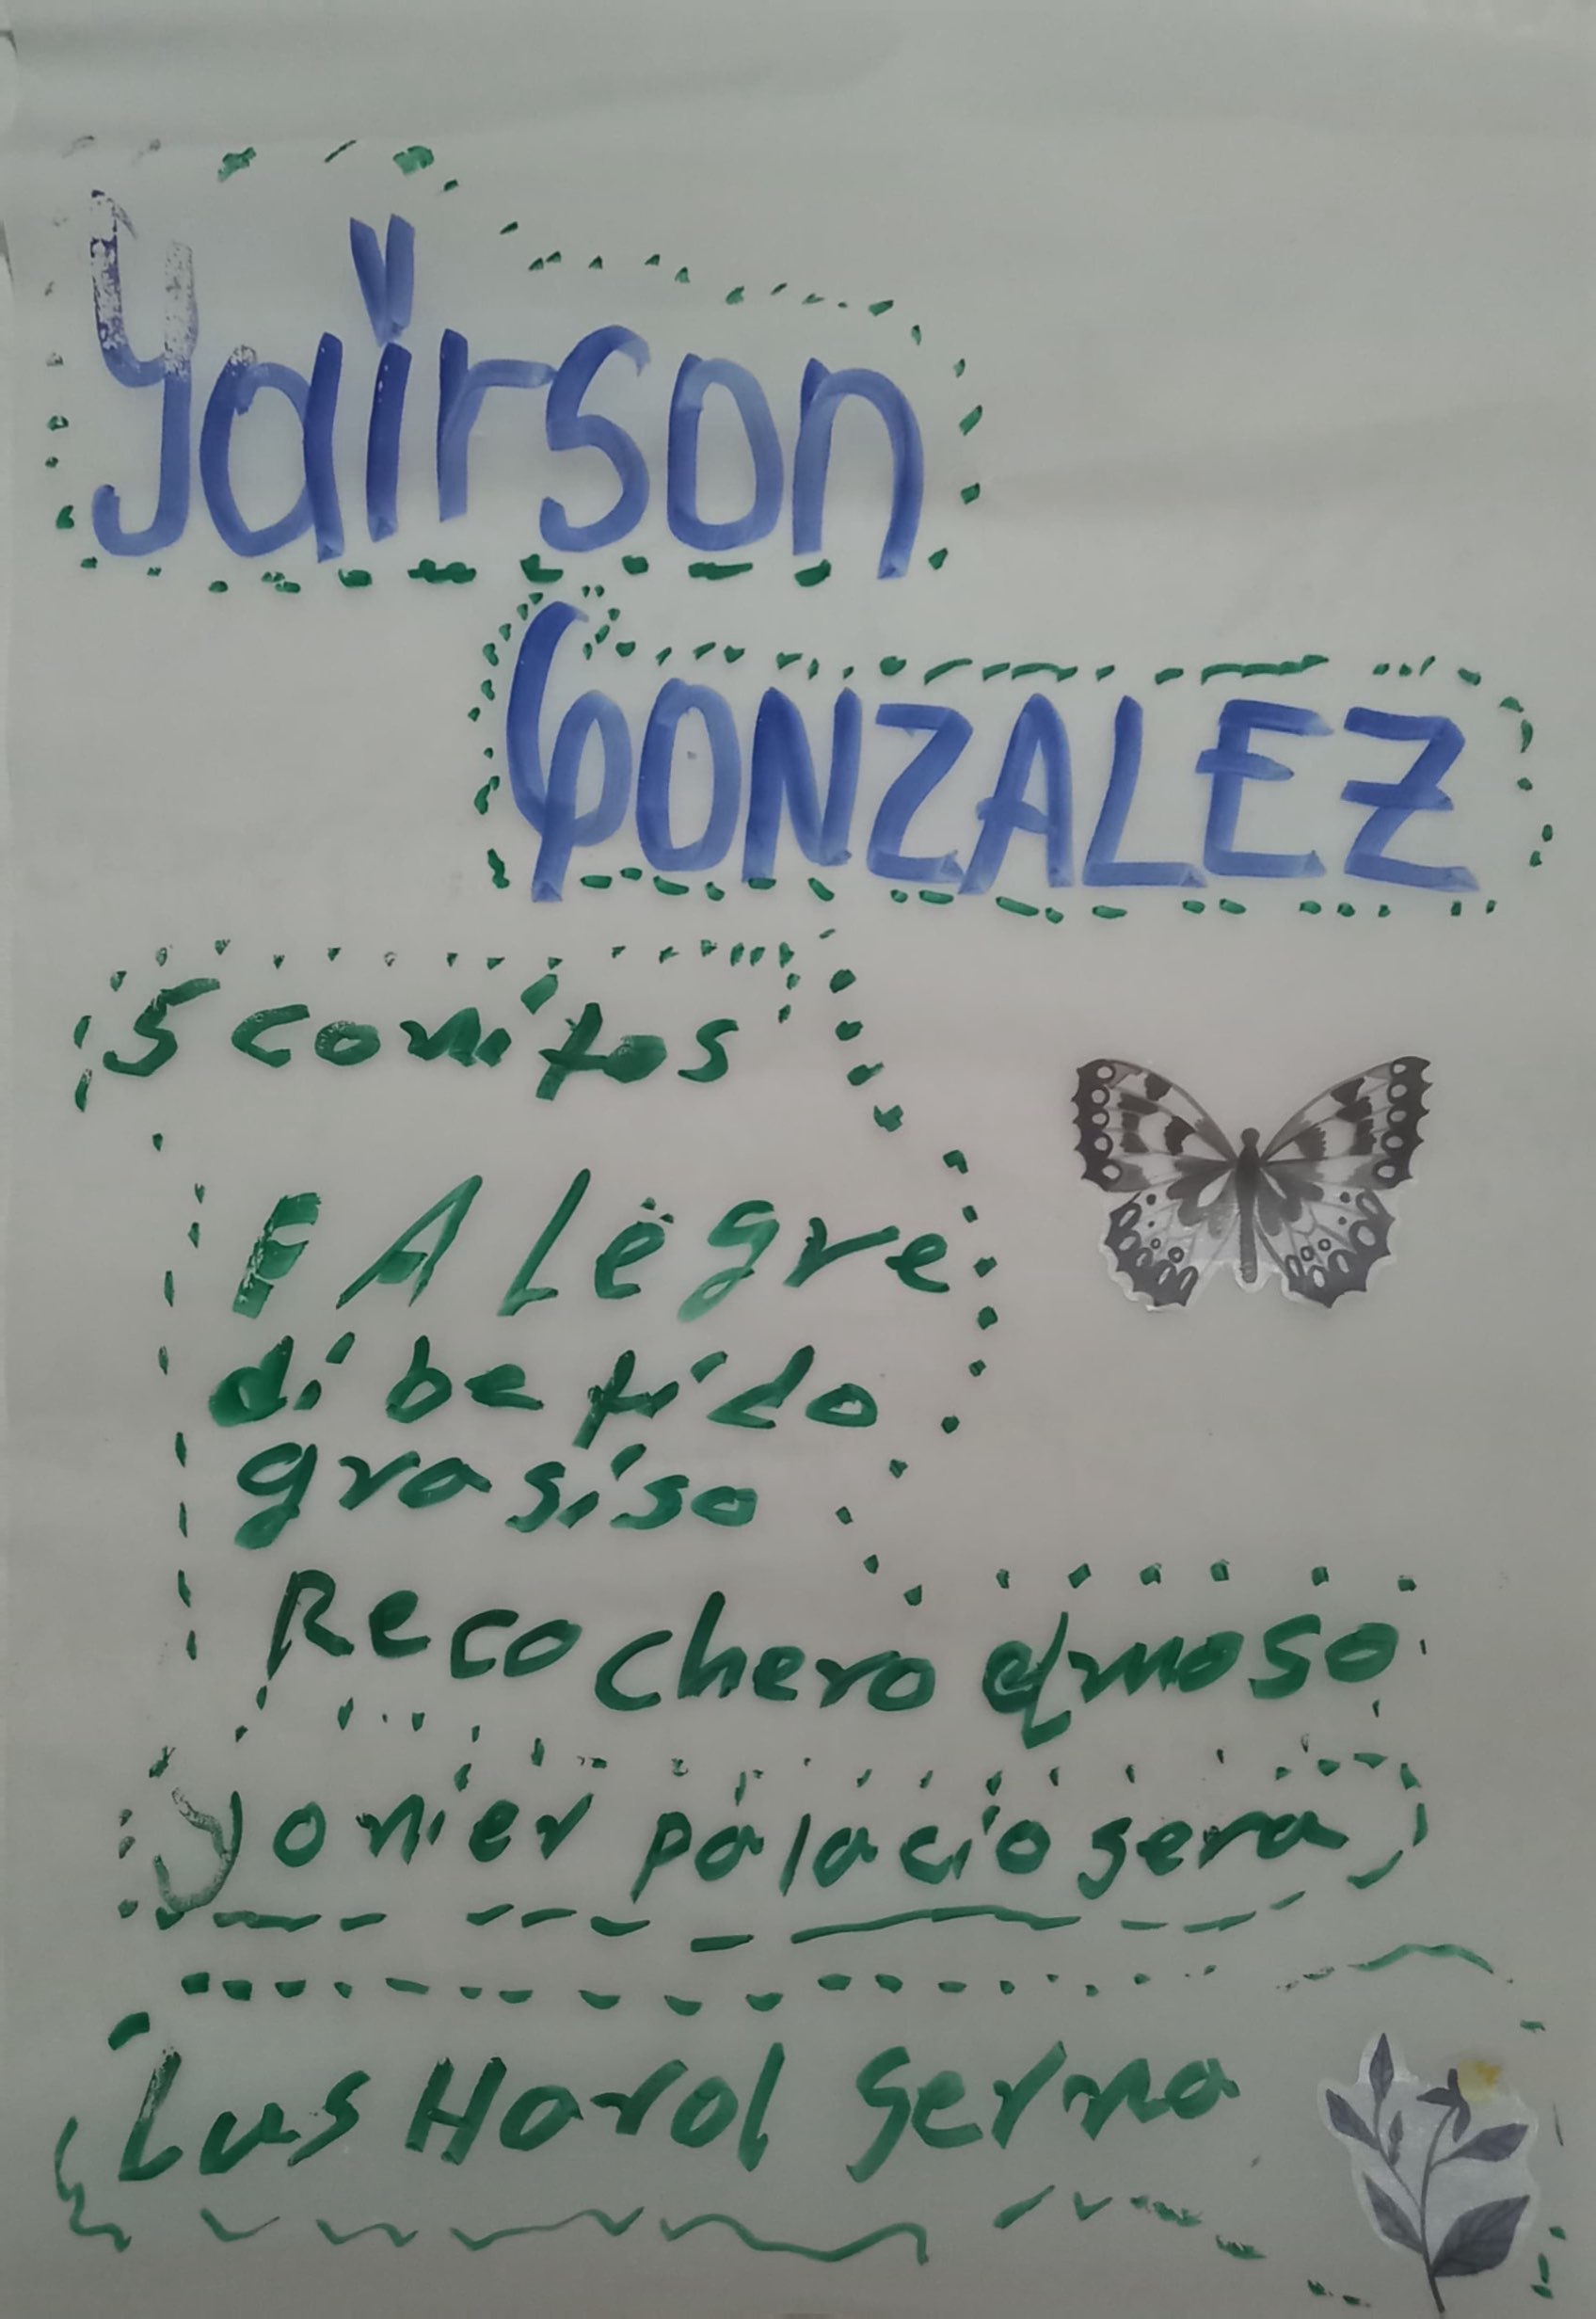 Yairson
GONZALEZ
5 comitos
Alegre
dibetido
grasiso
Recochero
Yonier palacio sera
Luis Harol serna